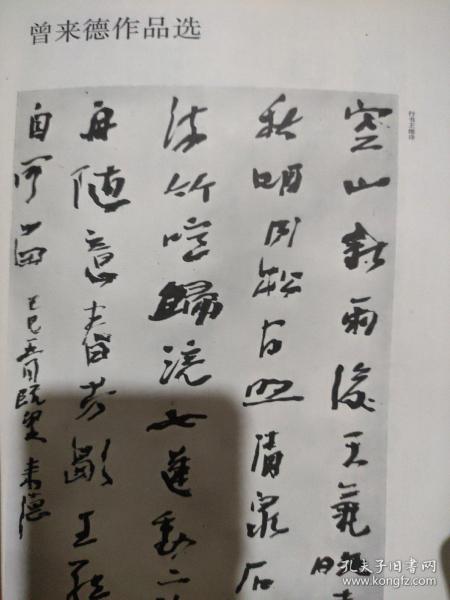 曾来德作品选
行书王维诗
空山新雨後天氣晚来
秋明月松间照清泉石
流竹喧歸浣女蓮動下
舟随意春芳歇王孫
自可留 己巳五月既望 来德
孔夫子旧书网